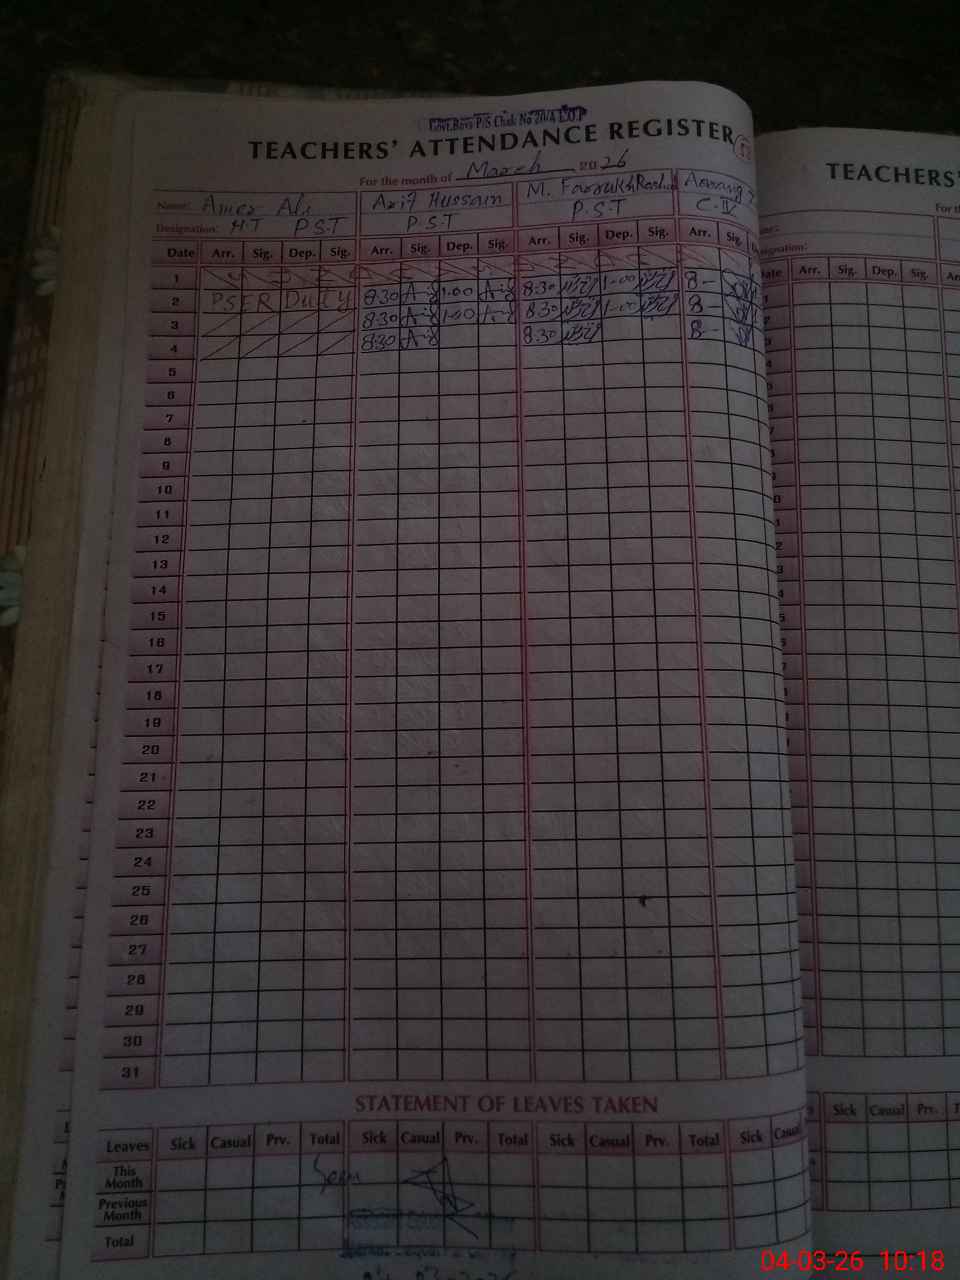 Govt.Boys P/S Chak No 20/4 L.O.P
TEACHERS' ATTENDANCE REGISTER
For the month of March 2026
Name: Amer Ali Asif Hussain M. Farrukh Rashid
Designation: HT P.S.T P.S.T P.S.T C-IV
Date Arr. Sig. Dep. Sig. Arr. Sig. Dep. Sig. Arr. Sig. Dep. Sig. Arr. Sig.
1
2 PSER Duty 8:30 1:00 8:30 1-00 8-
3 8:30 1:00 8:30 1-00 8-
4 8:30 8:30 8-
5
6
7
8
9
10
11
12
13
14
15
16
17
18
19
20
21
22
23
24
25
26
27
28
29
30
31
STATEMENT OF LEAVES TAKEN
Leaves Sick Casual Prv. Total Sick Casual Prv. Total Sick Casual Prv. Total Sick Casual
This Month Seen
Previous Month
Total
TEACHERS'
For th
Date Arr. Sig. Dep. Sig.
Sick Casual Prv.
04-03-26 10:18